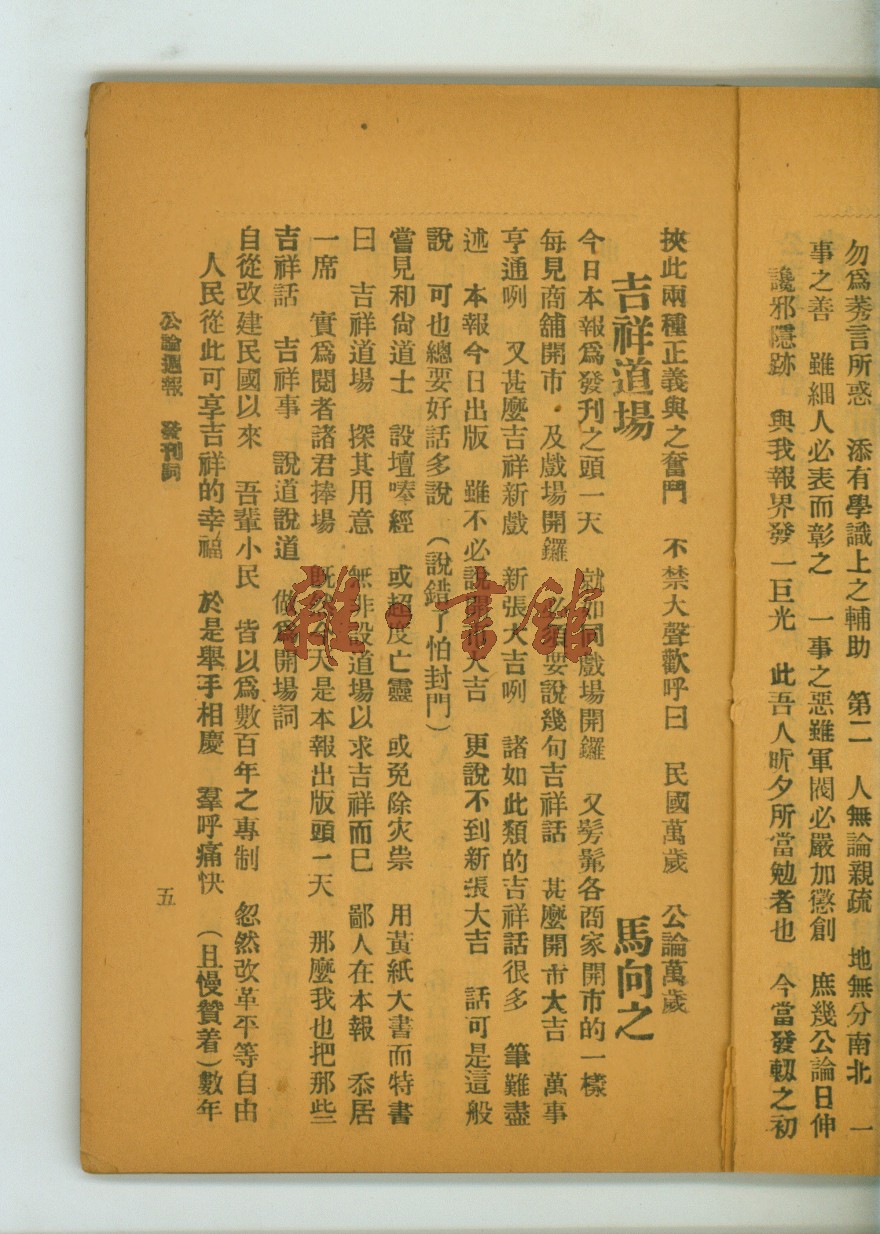 勿爲莠言所惑 添有學識上之輔助 第二 人無論親疏 地無分南北 一
事之善 雖細人必表而彰之 一事之惡雖軍閥必嚴加懲創 庶幾公論日伸
讒邪隱跡 與我報界發一巨光 此吾人昕夕所當勉者也 今當發軔之初
挾此兩種正義與之奮鬥 不禁大聲歡呼曰 民國萬歲 公論萬歲
吉祥道場 馬向之
今日本報爲發刊之頭一天 就如同戲場開鑼 又髣髴各商家開市的一樣
每見商舖開市・及戲場開鑼 必須要說幾句吉祥話 甚麼開市大吉 萬事
亨通咧 又甚麼吉祥新戲 新張大吉咧 諸如此類的吉祥話很多 筆難盡
述 本報今日出版 雖不必說開市大吉 更說不到新張大吉 話可是這般
說 可也總要好話多說(說錯了怕封門)
嘗見和尙道士 設壇唪經 或超度亡靈 或免除灾祟 用黃紙大書而特書
曰 吉祥道場 探其用意 無非設道場以求吉祥而已 鄙人在本報 忝居
一席 實爲閱者諸君捧場 既然今天是本報出版頭一天 那麼我也把那些
吉祥話 吉祥事 說道說道 做爲開場詞
自從改建民國以來 吾輩小民 皆以爲數百年之專制 忽然改革平等自由
人民從此可享吉祥的幸福 於是舉手相慶 羣呼痛快 (且慢贊着)數年
公論週報 發刊詞
五
雜・書館